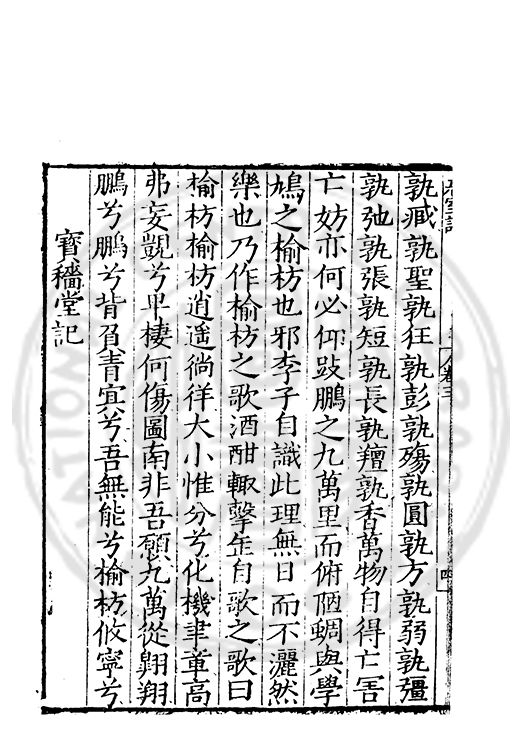 孰臧孰聖孰狂孰彭孰殤孰圓孰方孰弱孰彊
孰弛孰張孰短孰長孰羶孰香萬物自得亡害
亡妨亦何必仰跂鵬之九萬里而俯陋蜩與學
鳩之榆枋也邪李子自識此理無日而不灑然
樂也乃作榆枋之歌酒酣輒擊缶自歌之歌曰
榆枋榆枋逍遥徜徉大小惟分兮化機聿章高
弗妄覬兮卑棲何傷圖南非吾願九萬從翺翔
鵬兮鵬兮背負青㝠兮吾無能兮榆枋攸寧兮
寶穡堂記
卷三
四